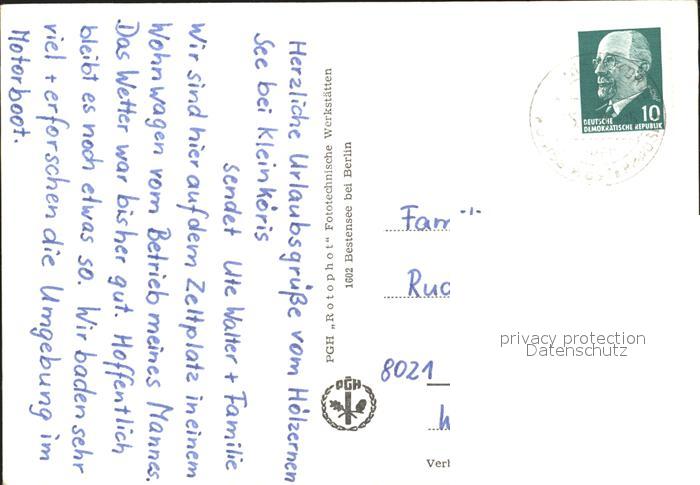 Herzliche Urlaubsgrüße vom Hölzernen
See bei Kleinköris
sendet Ute Walter + Familie
Wir sind hier auf dem Zeltplatz in einem
Wohnwagen vom Betrieb meines Mannes.
Das Wetter war bisher gut. Hoffentlich
bleibt es noch etwas so. Wir baden sehr
viel + erforschen die Umgebung im
Motorboot.
PGH „Rotophot“ Fototechnische Werkstätten
1602 Bestensee bei Berlin
PGH
10
DEUTSCHE
DEMOKRATISCHE REPUBLIK
Fam
8021
privacy protection
Datenschutz